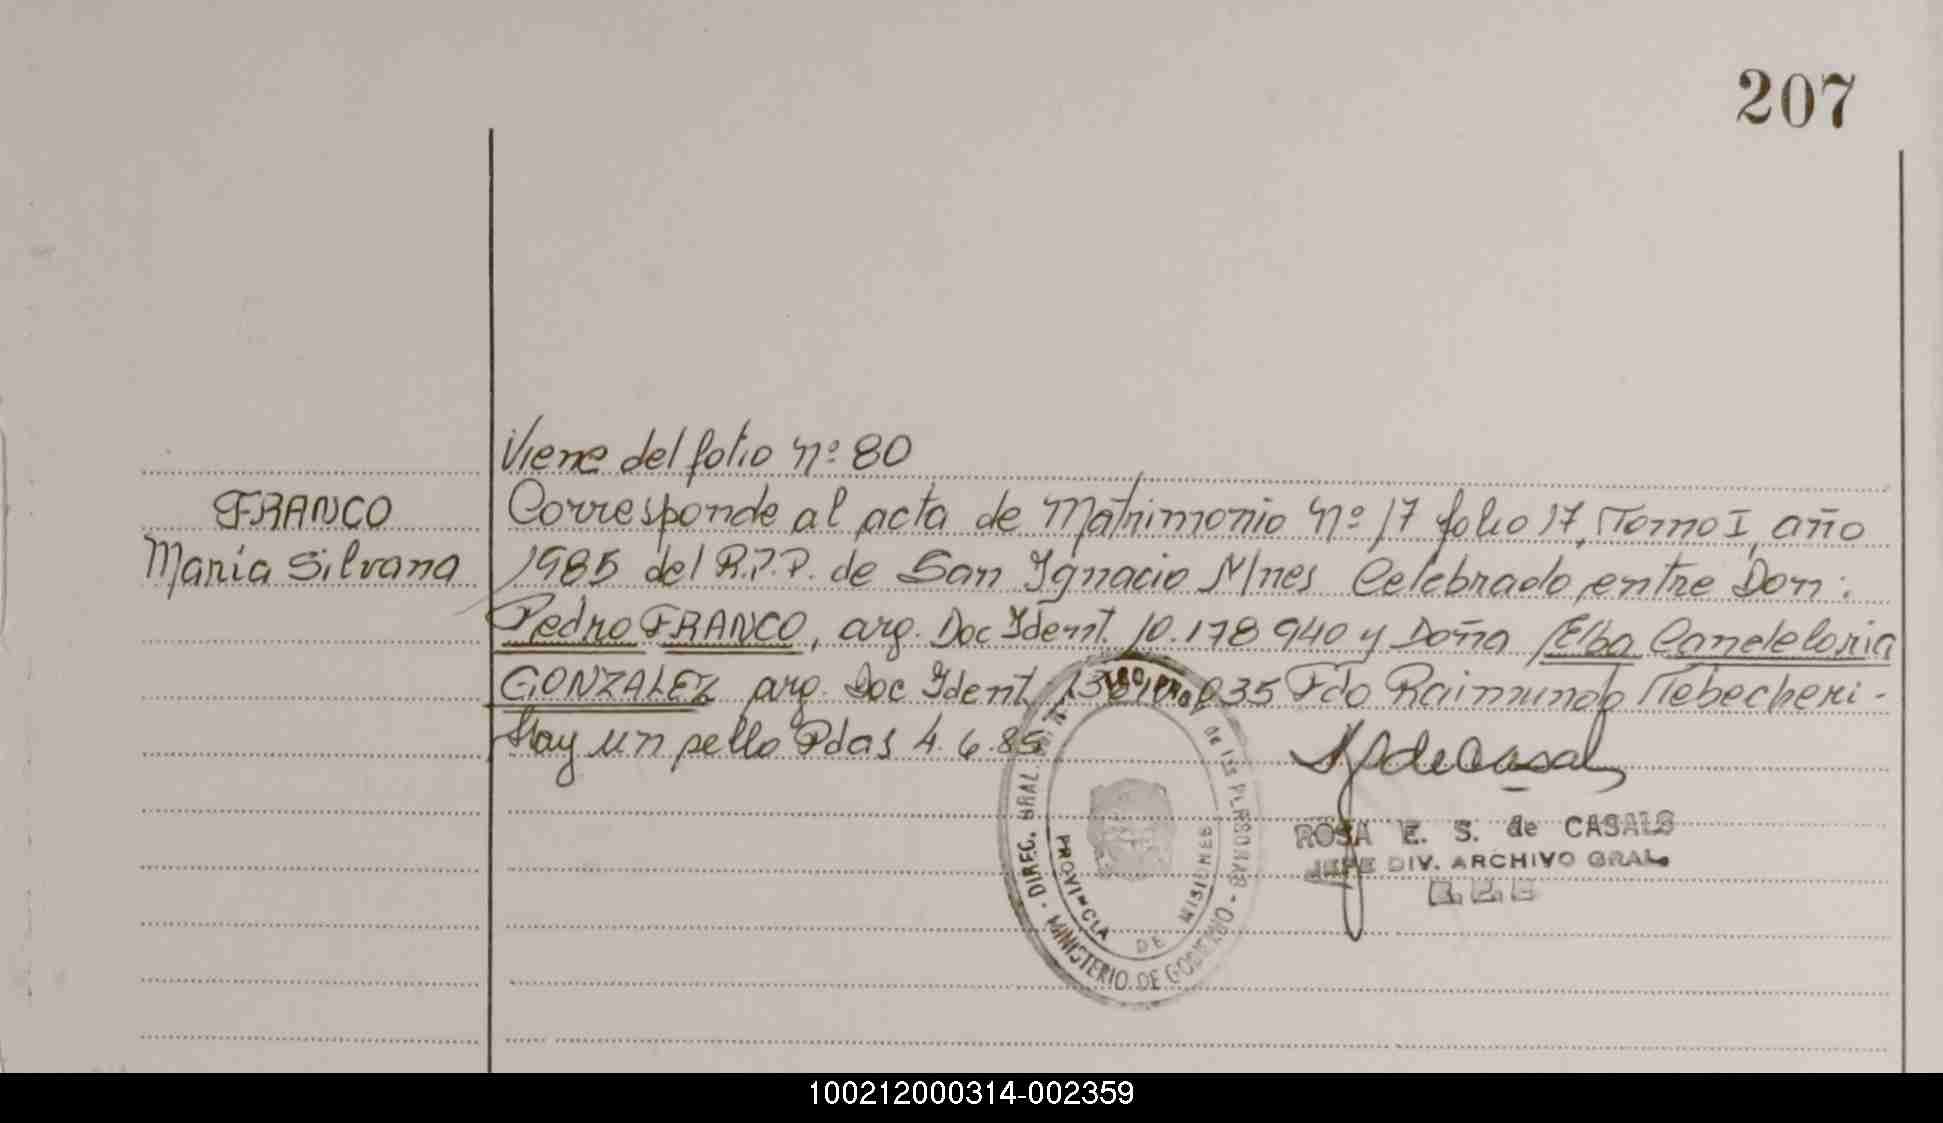 207
Viene del folio nº 80
FRANCO
Maria Silvana
Corresponde al acta de Matrimonio nº 17 folio 17, Tomo I, año
1985 del R.P.P. de San Ignacio Mnes Celebrado entre Don:
Pedro FRANCO, arg. Doc Ident. 10.178940 y Doña Elba Candeloria
GONZALEZ arg. Doc Ident 035 Fdo Raimundo Tebecheri-
Hay un sello Pdas 4.6.85
DIREC. GRAL. de las PERSONAS - MINISTERIO DE GOBIERNO -
PROVINCIA DE MISIONES
ROSA E. S. de CASALS
JEFE DIV. ARCHIVO GRAL.
100212000314-002359